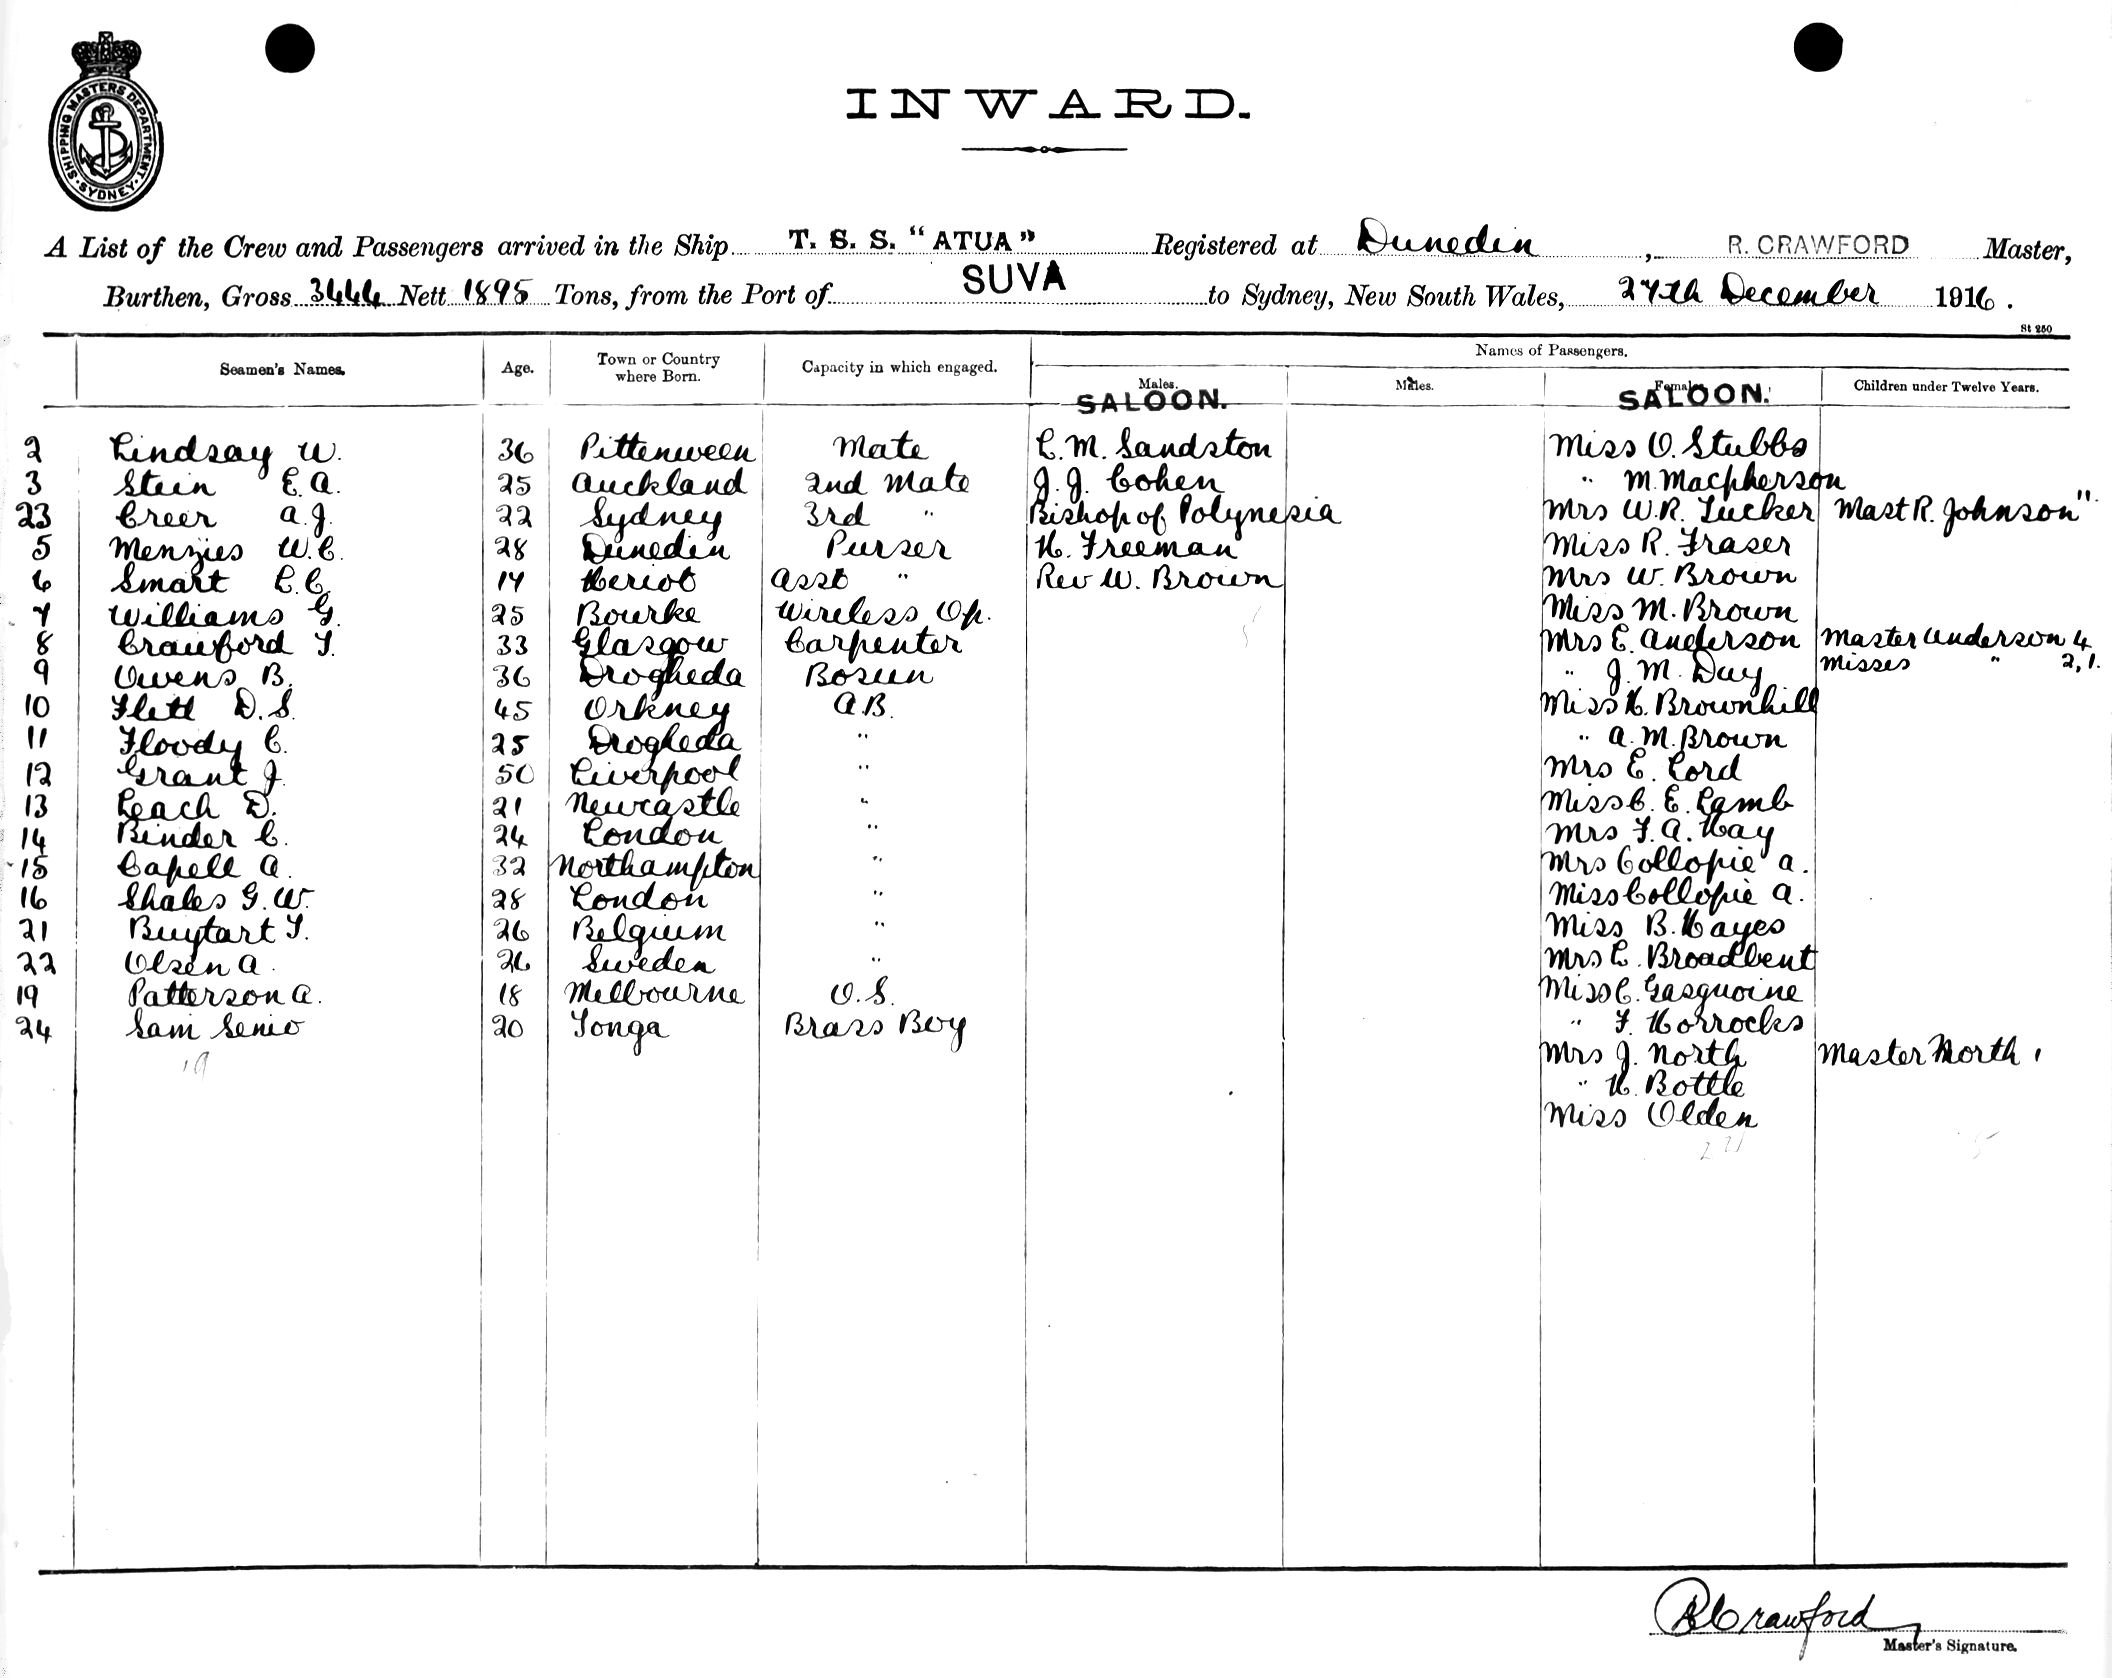 SHIPPING MASTERS DEPARTMENT. SYDNEY
INWARD.
A List of the Crew and Passengers arrived in the Ship T. S. S. "ATUA" Registered at Dunedin, R. CRAWFORD Master,
Burthen, Gross 3444 Nett 1895 Tons, from the Port of SUVA to Sydney, New South Wales, 27th December 1916.
St 250
Seamen's Names. Age. Town or Country where Born. Capacity in which engaged. Names of Passengers.
Males. Males. Females. Children under Twelve Years.
SALOON. SALOON.
2 Lindsay W. 36 Pittenween Mate L. M. Sandston Miss O. Stubbs
3 Stein E. A. 25 Auckland 2nd Mate J. J. Cohen " M. Macpherson
23 Creer A. J. 22 Sydney 3rd " Bishop of Polynesia Mrs W. R. Tucker Mast R. Johnson "
5 Menzies W. C. 28 Dunedin Purser H. Freeman Miss R. Fraser
6 Smart L. C. 17 Heriot Asst " Rev W. Brown Mrs W. Brown
7 Williams G. 25 Bourke Wireless Op. Miss M. Brown
8 Crawford T. 33 Glasgow Carpenter Mrs E. Anderson Master Anderson 4
9 Owens B. 36 Drogheda Bosun " J. M. Day Misses " 2, 1.
10 Flett D. S. 45 Orkney A. B. Miss H. Brownhill
11 Floody C. 25 Drogheda " " A. M. Brown
12 Grant J. 50 Liverpool " Mrs E. Lord
13 Leach D. 21 Newcastle " Miss C. E. Lamb
14 Binder C. 24 London " Mrs F. A. Hay
15 Capell A. 32 Northampton " Mrs Collopie A.
16 Shales G. W. 28 London " Miss Collopie A.
21 Buytart F. 26 Belgium " Miss B. Hayes
22 Olsen A. 26 Sweden " Mrs L. Broadbent
19 Patterson A. 18 Melbourne O. S. Miss C. Gasquoine
24 Sam Senio 20 Tonga Brass Boy " F. Horrocks
19 Mrs J. North Master North 1
" H. Bottle
Miss Olden
R Crawford
Master's Signature.